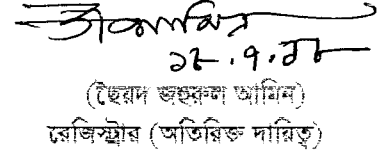 ১৮.৭.১৮
(ছৈয়দ জহুরুল আমিন)
রেজিস্ট্রার (অতিরিক্ত দায়িত্ব)